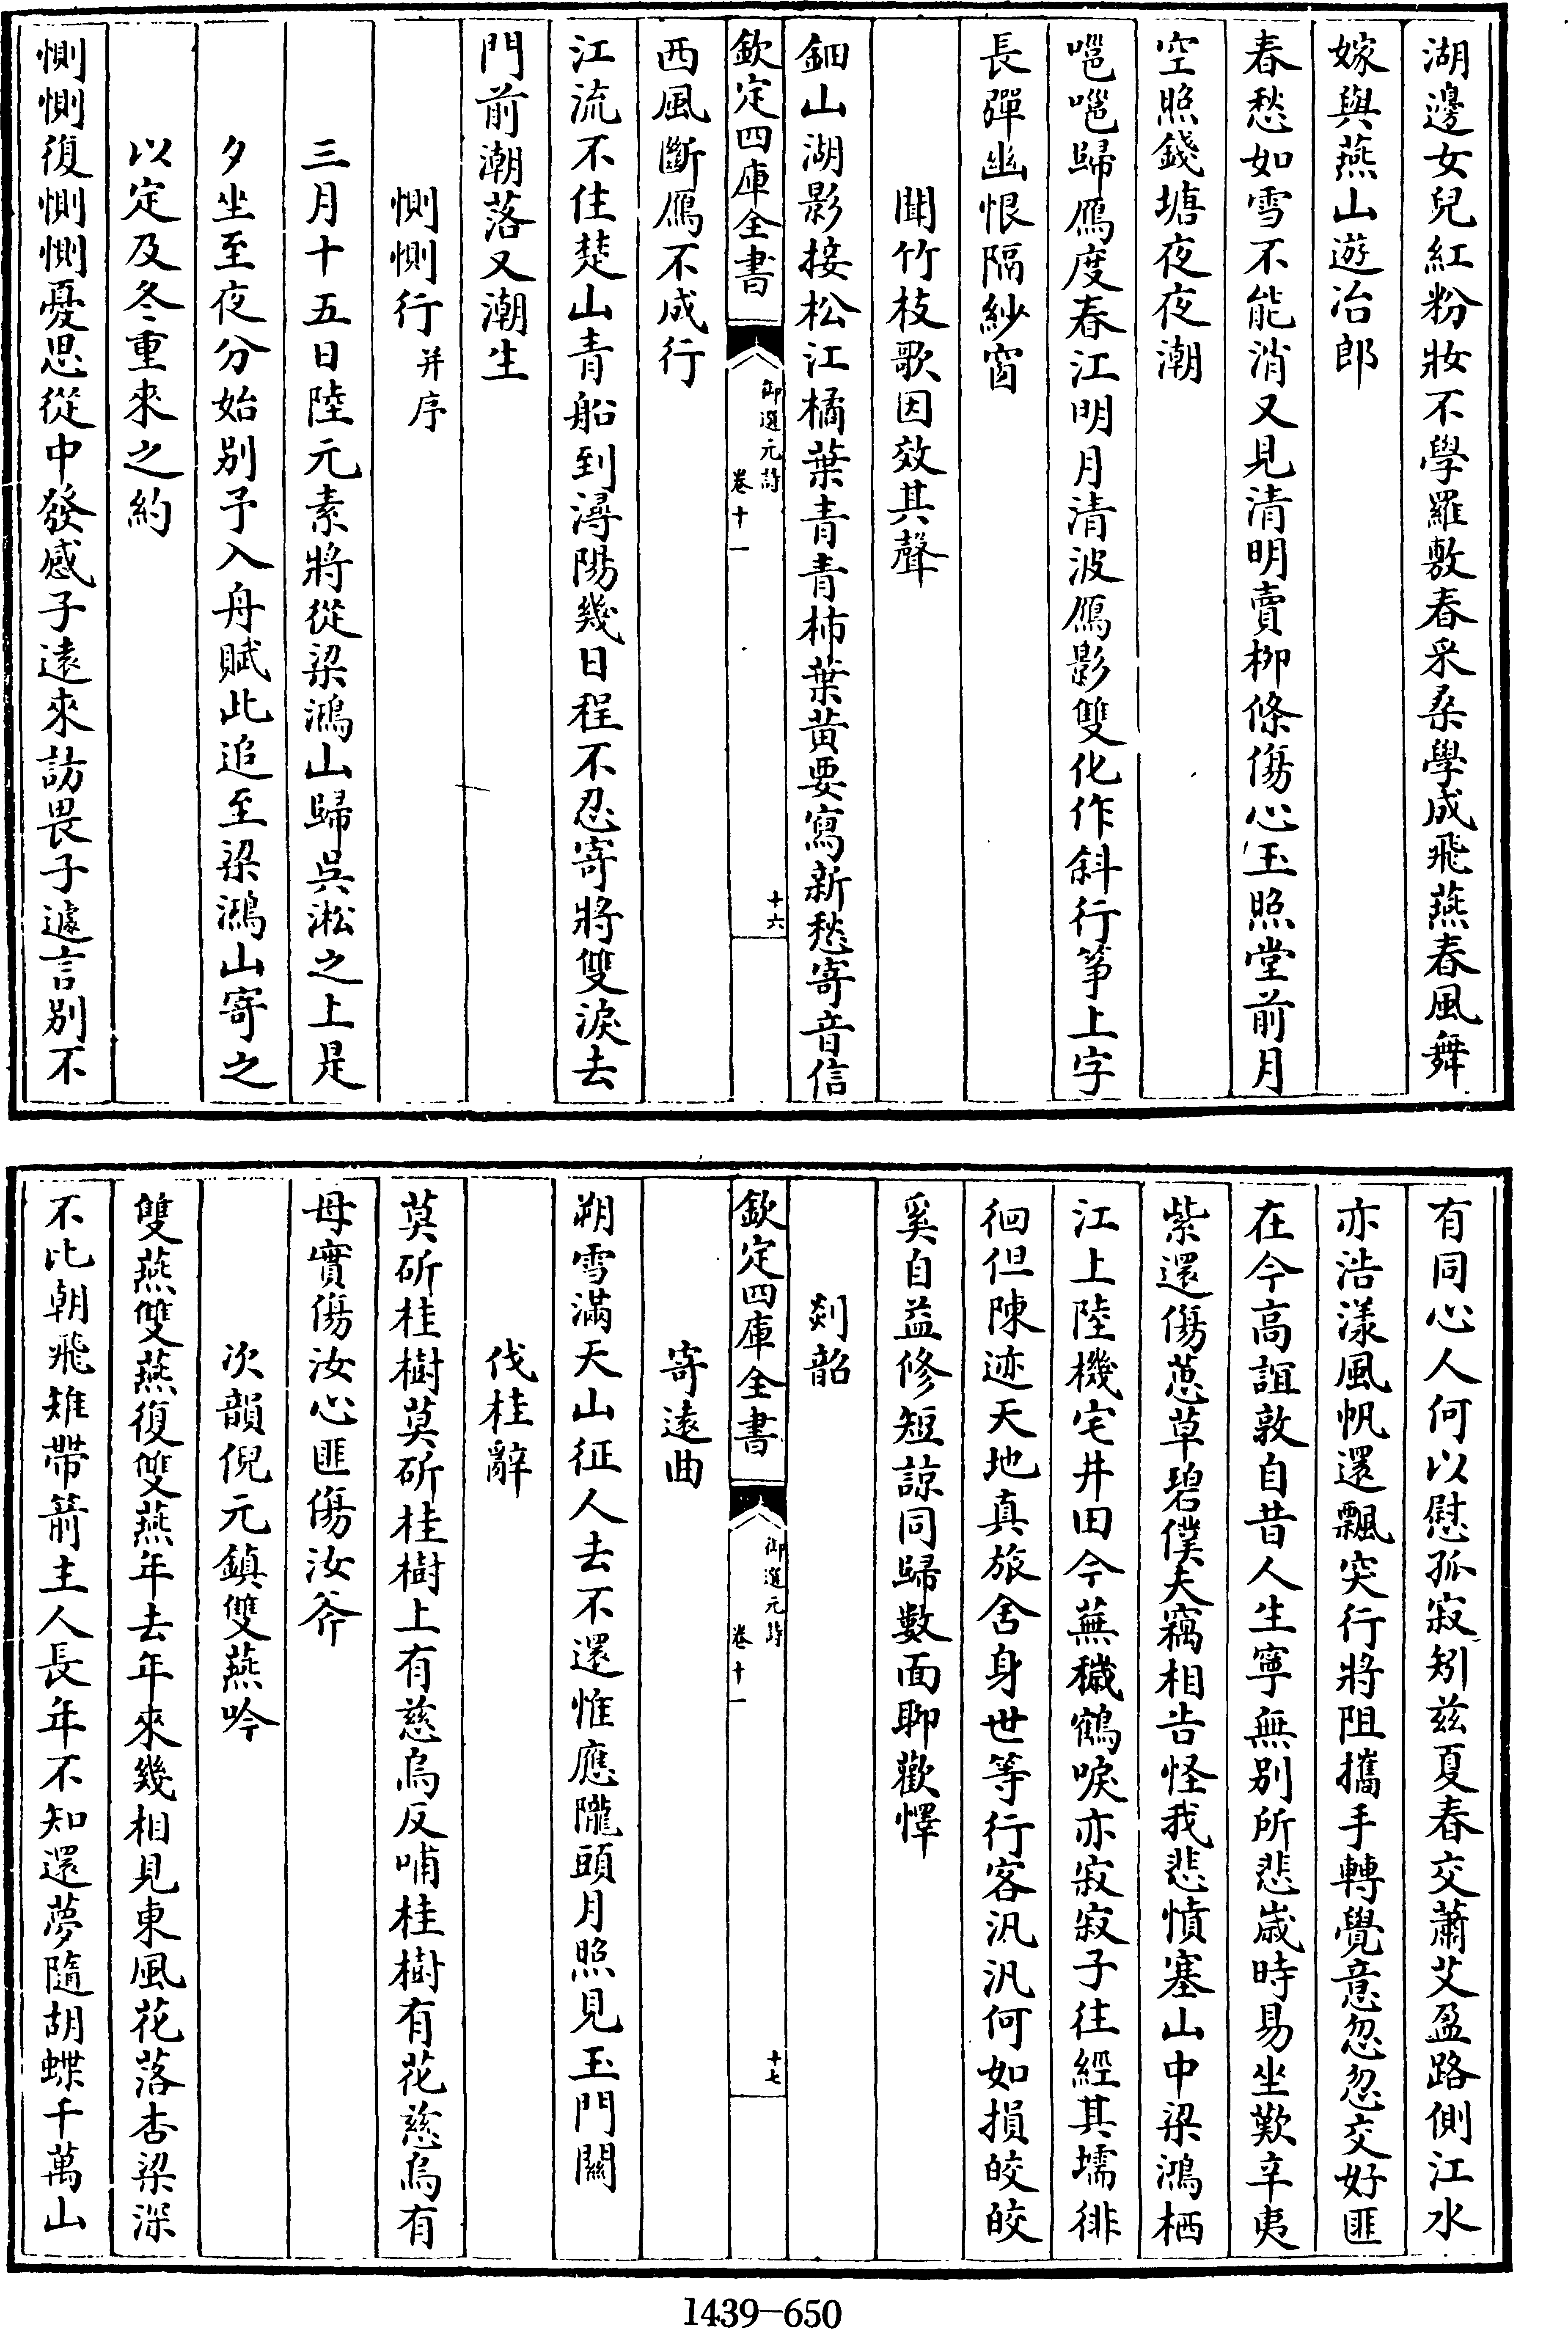 湖邊女兒紅粉妝不學羅敷春采桑學成飛燕春風舞
嫁與燕山遊冶郎
春愁如雪不能消又見清明賣柳條傷心玉照堂前月
空照錢塘夜夜潮
嗈嗈歸鴈度春江明月清波鴈影雙化作斜行箏上字
長彈幽恨隔紗窗
聞竹枝歌因效其聲
鈿山湖影接松江橘葉青青柿葉黃要寫新愁寄音信
欽定四庫全書
御選元詩
卷十一
十六
西風斷鴈不成行
江流不住楚山青船到潯陽幾日程不忍寄將雙淚去
門前潮落又潮生
惻惻行并序
三月十五日陸元素將從梁鴻山歸吳淞之上是
夕坐至夜分始別予入舟賦此追至梁鴻山寄之
以定及冬重來之約
惻惻復惻惻憂思從中發感子遠來訪畏子遽言別不
有同心人何以慰孤寂矧兹夏春交蕭艾盈路側江水
亦浩漾風帆還飄突行將阻攜手轉覺意忽忽交好匪
在今高誼敦自昔人生寧無別所悲歲時易坐歎辛夷
紫還傷蕙草碧僕夫竊相告怪我悲憤塞山中梁鴻栖
江上陸機宅井田今蕪穢鶴唳亦寂寂子往經其壖徘
徊但陳迹天地真旅舍身世等行客汎汎何如損皎皎
奚自益修短諒同歸數面聊歡懌
剡韶
欽定四庫全書
御選元詩
卷十一
十七
寄遠曲
朔雪滿天山征人去不還惟應隴頭月照見玉門關
伐桂辭
莫斫桂樹莫斫桂樹上有慈烏反哺桂樹有花慈烏有
母實傷汝心匪傷汝斧
次韻倪元鎮雙燕吟
雙燕雙燕復雙燕年去年來幾相見東風花落杏梁深
不比朝飛雉帶箭主人長年不知還夢隨胡蝶千萬山
1439-650